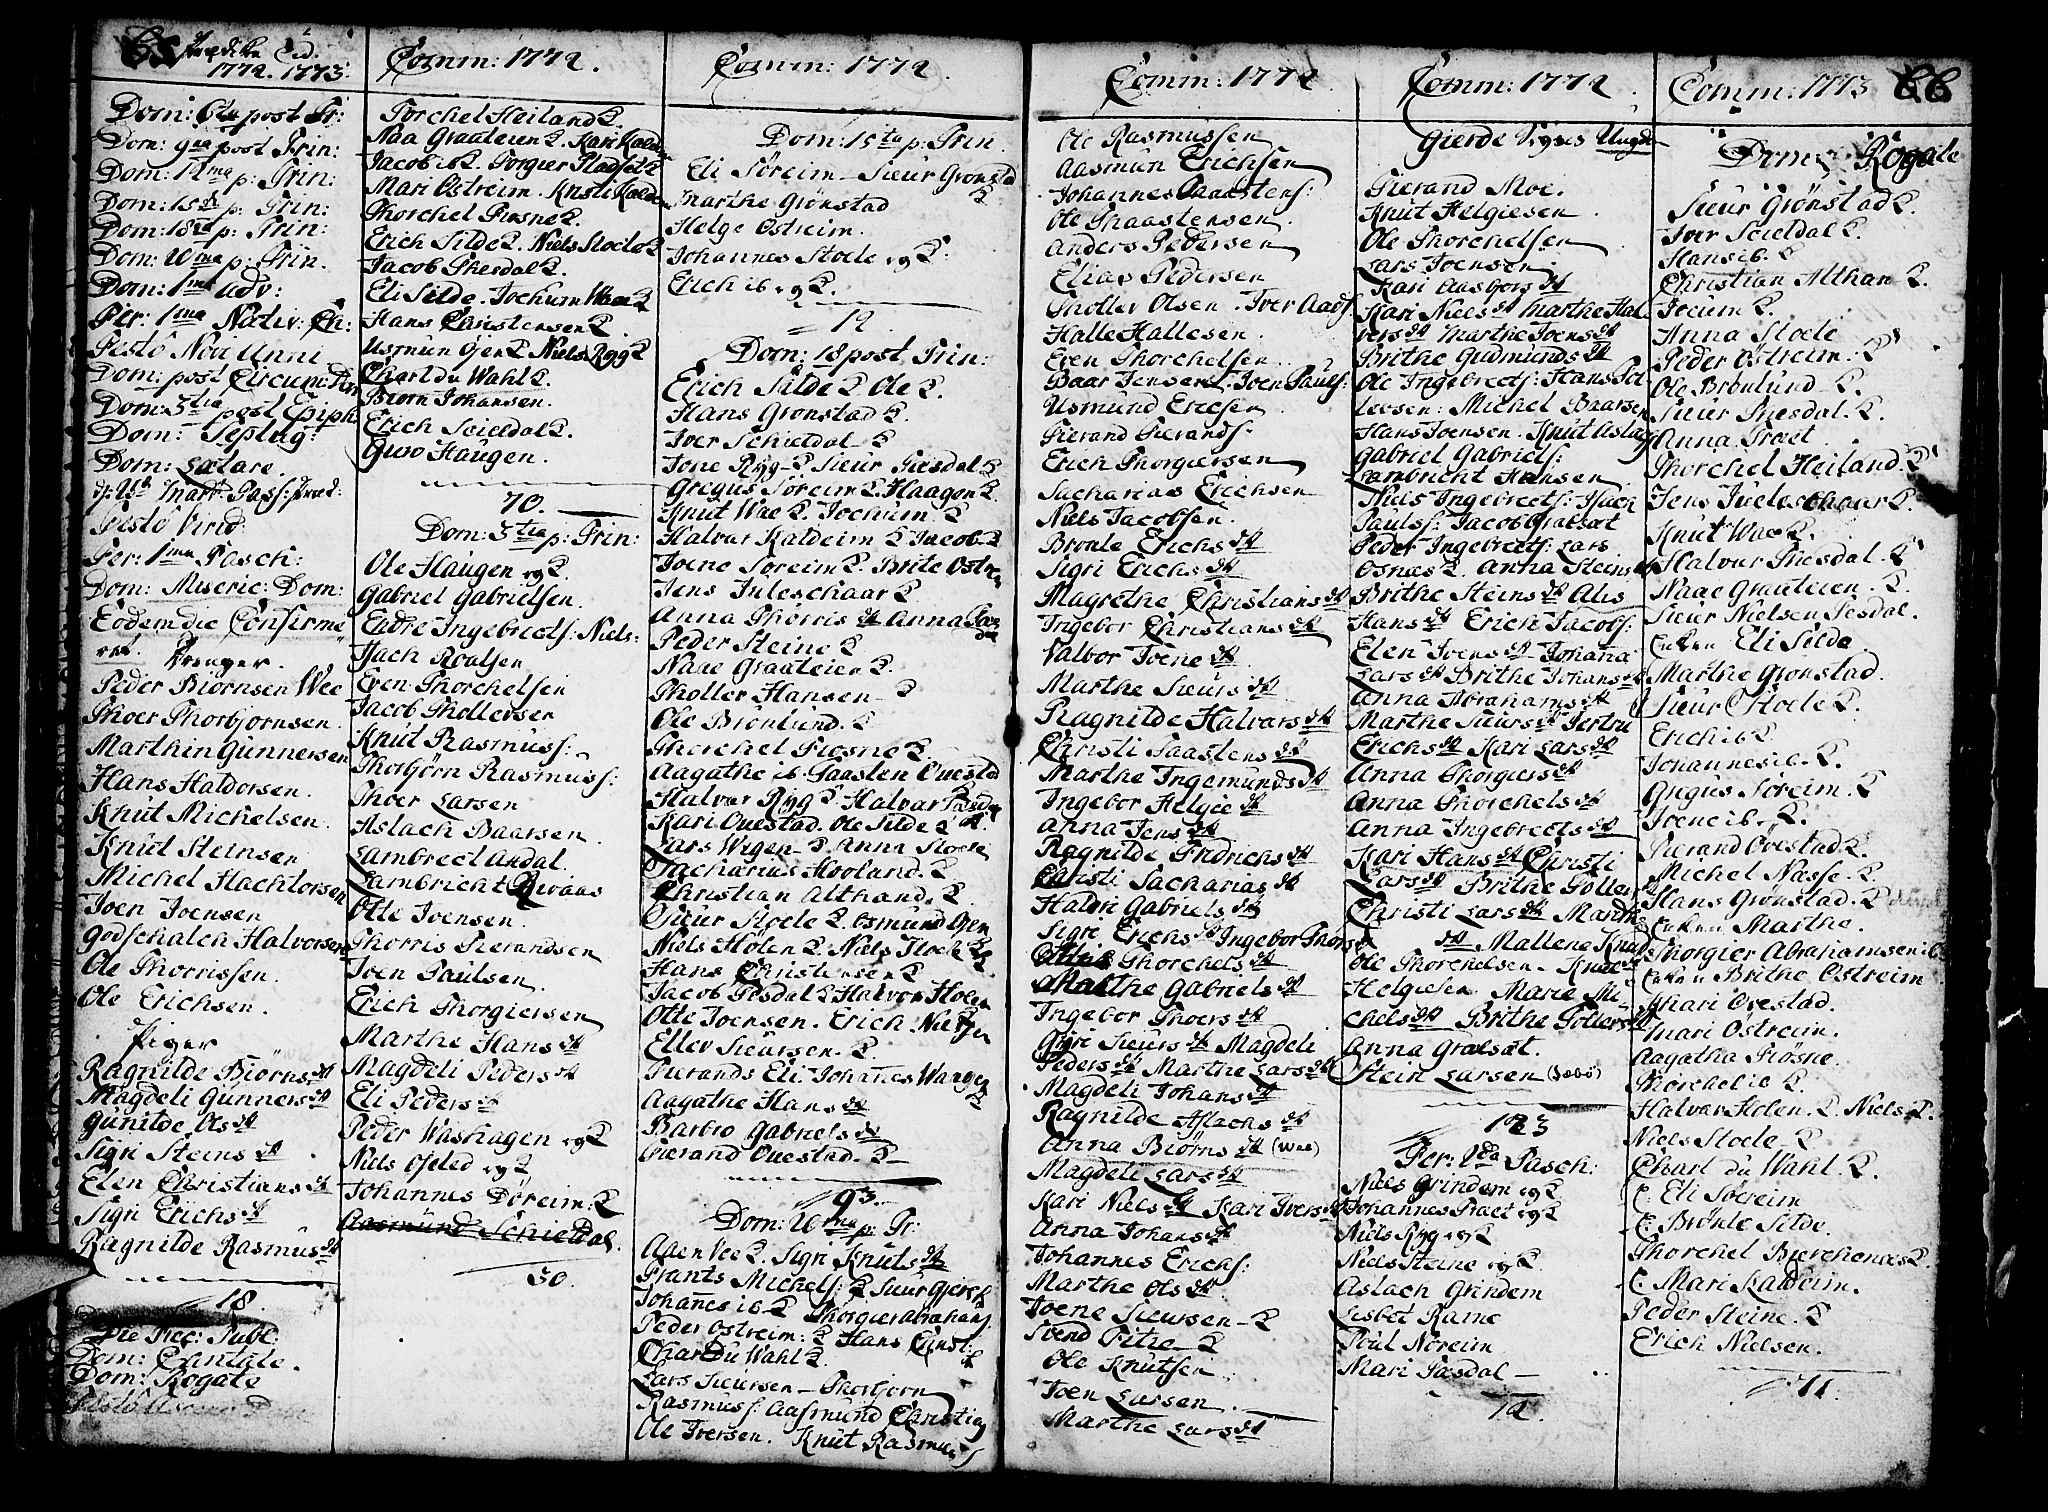 65
1772. 1773.
Dom: 6ta post Tr:
Dom: 9na post Trin:
Dom: 12ma p: Trin:
Dom: 15ta p: Trin:
Dom: 18va p: Trin:
Dom: 20ma p: Trin.
Dom: 1ma Adv:
Fer: 1ma Nativ: Ch:
Festo Novi Anni
Dom: post Circum:
Dom: 3tia post Epiph
Dom: Septug:
Dom: Lætare.
Festo Virid:
Fer: 1ma Pasch:
Dom: Miseric: Dom:
Eodem die Confirme
ret. Drenger.
Peder Biørnsen Wee
Thoer Thorbjørnsen.
Marthin Gunnersen
Hans Haldorsen.
Knut Michelsen.
Knut Steinsen
Michel Hachtorsen
Joen Joensen
Godschalch Halvorsen
Ole Thorrissen.
Ole Erichsen.
Piger
Ragnilde Biørns dt
Magdeli Gunners dt
Gunilde Ols dt
Sigri Steins dt
Elen Christians dt
Sigri Erichs dt
Ragnilde Rasmus dt
18.
Die Prec: Publ:
Dom: Cantate.
Dom: Rogate
Comm: 1772.
Torchel Heiland 2.
Naa Grauteien 2. Kari Kalde
Jacob ib 2. Torgier
Mari Østreim. Kristi Kalde
Thorchel Fiosne 2.
Erich Silde 2. Niels Stoele 2
Jacob Thesdal 2.
Eli Silde. Jochum Wae 2
Hans Christensen 2
Usmun Gjen 2 Niels Rygg 2
Charl du Wahl 2.
Biørn Johansen.
Erich Scieldal 2.
Guro Haugen.
70.
Dom: 3tia p: Trin:
Ole Haugen og 2.
Gabriel Gabrielsen.
Endre Ingebrects: Niels:
Isach Roalsen
Even Thorchelsen
Jacob Thollevsen
Knut Rasmuss:
Thorbjørn Rasmuss:
Thoer Larsen
Aslach Baarsen
Lambrect Andal.
Lambricht
Otte Joensen.
Thorris Sierandsen
Joen Paulsen.
Erich Thorgiersen
Marthe Hans dt
Magdeli Peders dt
Eli Peders dt
Peder Washagen og 2
Niels Ofsted og 2
Johannes Døreim: 2
Aasmund Schieldal.
30.
Comm: 1772.
Dom: 15ta p: Trin.
Eli Søreim_ Sieur Grønstad
2.
Marthe Grønstad
Helge Østreim.
Johannes Stoele og 2.
Erich ib og 2.
12
Dom: 18 post Trin:
Erich Silde 2 Ole 2.
Hans Grønstad 2.
Iver Schieldal_ 2
Jone Ryg_ 2 Sieur Tiesdal 2
Gregus Søreim 2. Haagen 2.
Knut Wae 2. Jochum 2
Halvar Kaldeim 2 Jacob 2
Joene Søreim 2. Brite Østre
Jens Juleschaar 2
Anna Thorris dt Anna
Peder Steine 2
Naae Grauteien 2
Tholler Hansen_ 2
Ole Brønlund. 2
Thorchel Fiosne 2
Aagathe ib. Taasten Ouestad
Halvar Ryg 2. Halvar
Kari Ouestad. Ole Silde 2
Lars Wigen_ 2 Anna Stoele
Zacharias Hovland. 2
Christian Althand. 2
Sieur Stoele 2. Osmund Gjen
Niels Holen 2. Niels Stoele 2
Hans Christensen 2
Jacob Tesdal 2 Halvor Holen
Otte Joensen. Erich Nielsen
Ellev Sieursen. 2.
Sierands Eli. Johannes Wangen 2
Aagathe Hans dt
Barbro Gabriels dt
Gierand Ouestad. 2_
93.
Dom: 20ma p: Tr:
Aaen Vee 2. Sigri Knuts dt
Frants Michels: 2 Sieur
Johannes ib_ 2 Thorgier Abrahams
Peder Østreim: 2 Hans Christ:
Charl Du Wahl 2.
Lars Sieursen_ Thorbjørn
Rasmuss: Aasmund Christian
Ole Iversen. Knut Rasmus
Comm: 1772.
Ole Rasmussen
Aasmun Erichsen
Johannes Taastens:
Ole Thaastensen.
Anders Pedersen
Elias Pedersen
Tholler Olsen. Iver Aads
Halle Hallesen.
Even Thorchelsen.
Baar Jensen. Joen Pauls:
Usmund Ericsen.
Sierand Sierands:
Erich Thorgiersen
Sacharias Erichsen
Niels Jacobsen.
Bronle Erichs dt
Sigri Erichs dt
Magrethe Christians dt
Ingebor Christians dt
Valbor Joene dt.
Marthe Sieurs dt
Ragnilde Halvars dt
Christi Taastens dt
Marthe Ingemunds dt
Ingebor Helgie dt
Anna Jens dt
Ragnilde Fridrichs dt
Christi Sacharias dt
Haldri Gabriels dt
Sigri Erichs dt Ingebor Thors dt
Thorchels dt
Marthe Gabriels dt
Ingebor Thoers dt
Guri Sieurs dt Magdeli
Peders dt Marthe Lars dt
Magdeli Johans dt
Ragnilde Aslachs dt
Anna Biørns dt (Wee)
Magdeli Lars dt
Kari Niels dt Kari Ivers dt
Anna Johans dt
Johannes Erichs:
Marthe Ols dt
Joene Sieursen_ 2
Svend Titie_ 2
Ole Knutsen
Joen Larsen.
Marthe Lars dt
Comm: 1772.
Gierde Ungd
Sierand Moe.
Knut Helgiesen.
Ole Thorchelsen
Lars Joensen
Kari Aasgors dt
Kari Niels dt Marthe Hal
vers dt Marthe Joens dt
Brithe Gudmunds dt
Ole Ingebrects: Hans Tol
levsen: Michel Baarsen
Hans Joensen. Knut Aslags
Gabriel Gabriels:
Lambricht Hansen
Niels Ingebrects: Isach
Pauls: Jacob Gralsæt
Peder Ingebrects: Lars
Osnæs 2. Anna Steins dt
Brithe Steins dt Alis
Hans dt Erich Jacobs:
Elen Joens dt Johana
Lars dt Brithe Johans dt
Anna Abrahams dt
Marthe Sieurs dt Sertru
Erichs dt Kari Lars dt
Anna Thorgiers dt
Anna Thorchels dt
Anna Ingebrects dt
Kari Hans dt Christi
Lars dt Brithe Tollevs
Christi Lars dt Marthe
dt Mallene Knuds
Ole Thorchelsen. Knut
Helgiesen Marie Mi
chels dt Brithe Tollevs dt
Anna Gralsæt.
Stein Larsen
123
Fer: 2da Pasch:
Niels Grindem og 2.
Johannes Træet og 2
Niels Ryg og 2
Niels Steine og 2.
Aslach Grindem
Lisbet Ramo
Poul Noreim
Mari Tasdal_
12.
Comm: 1773
66
Dom: Rogate
Sieur Grønstad 2.
Iver Scieldal 2.
Hans ib. 2
Christian Althan 2.
Jocum 2.
Anna Stoele
Peder Østreim. 2
Ole Brønlund_ 2.
Sieur Thesdal. 2.
Anna Træet.
Thorchel Heiland. 2
Jens Juleschaar 2.
Knut Wae 2.
Halvur Thesdal. 2
Naae Grauteien. 2.
Sieur Nielsen Tesdal.
Enken Eli Silde
Marthe Grønstad.
Sieur Stoele 2.
Erich ib 2
Johannes ib. 2.
Gregus Søreim. 2
Joene ib. 2.
Sierand Øvestad 2.
Michel Næsse. 2
Hans Grønstad. 2
Enken Marthe.
Thorgier Abrahamsen ib
Enken Brithe Østreim
Khari Øvestad.
Mari Østreim.
Aagatha Fiøsne.
Thorchel ib 2.
Halvar Holen. 2. Niels 2.
Niels Stoele_ 2
Charl du Wahl. 2.
E. Eli Søreim
E: Brønle Silde.
Thorchel Bierchenes 2.
E. Mari Kaldeim.
Peder Steine. 2
Erich Nielsen.
71.